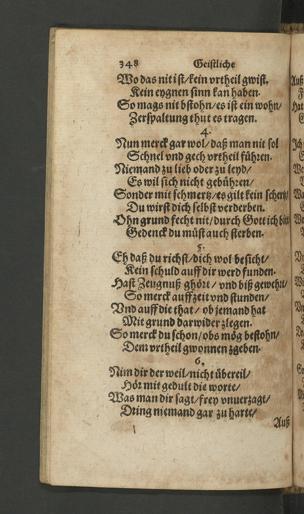 348 Geistliche
Wo das nit ist/kein vrtheil gwist.
Kein eygnen sinn kan haben.
So mags nit bstohn/es ist ein wohn/
Zerspaltung thut es tragen.
4.
Nun merck gar wol/daß man nit sol
Schnel vnd gech vrtheil führen.
Niemand zu lieb oder zu leyd/
Es wil sich nicht gebühren/
Sonder mit schmertz/es gilt kein schertz/
Du wirst dich selbst verderben.
Ohn grund fecht nit/durch Gott ich bitt
Gedenck du müst auch sterben.
5.
Eh daß du richst/dich wol besicht/
Kein schuld auff dir werd funden.
Hast Zeugnuß ghört/ vnd biß gewehrt/
So merck auff zeit vnd stunden/
Vnd auff die that/ ob jemand hat
Mit grund darwider zlegen.
So merck du schon/obs mög bestohn/
Dem vrtheil gwonnen zgeben.
6.
Nim dir der weil/nicht übereil/
Hör mit gedult die worte/
Was man dir sagt/frey vnuerzagt/
Dring niemand gar zu harte/
Auß